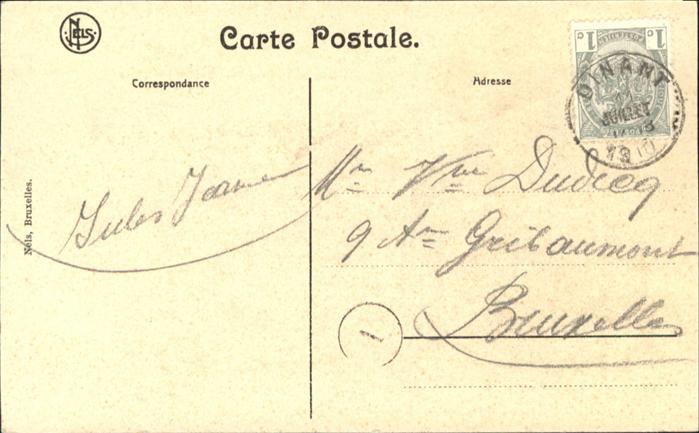 NELS
Carte Postale.
Correspondance
Adresse
1 c
1 c
DINANT
JUILLET
1910
Nels, Bruxelles.
Jules Jeanne
Mme Vve Dudicq
9 Av Gribaumont
Bruxelles
1